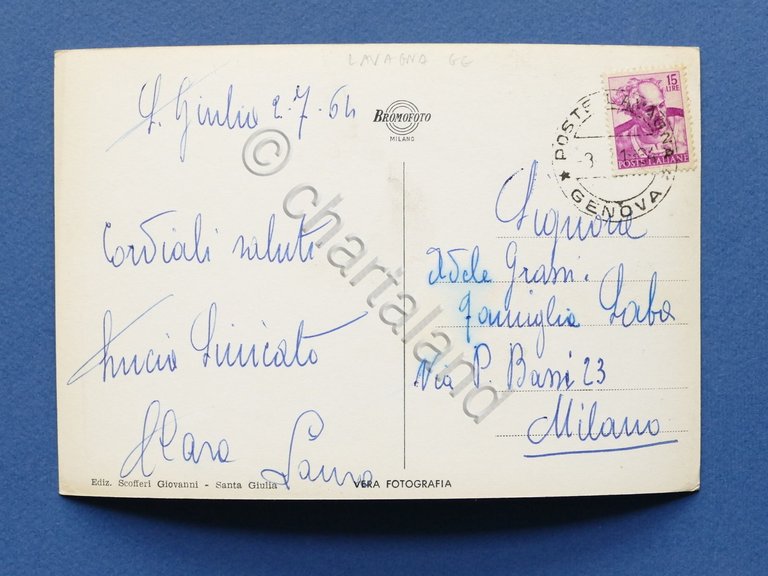 LAVAGNA GE
S. Giulia 2.7.64
BROMOFOTO
MILANO
15
LIRE
POSTE ITALIANE
POSTE LAVAGNA
GENOVA
Cordiali saluti
Lucia
Clara Laura
Signora
Adele Grassi.
famiglia Laba
Via P. Bassi 23
Milano
Ediz. Scofferi Giovanni - Santa Giulia
VERA FOTOGRAFIA
© chartaland